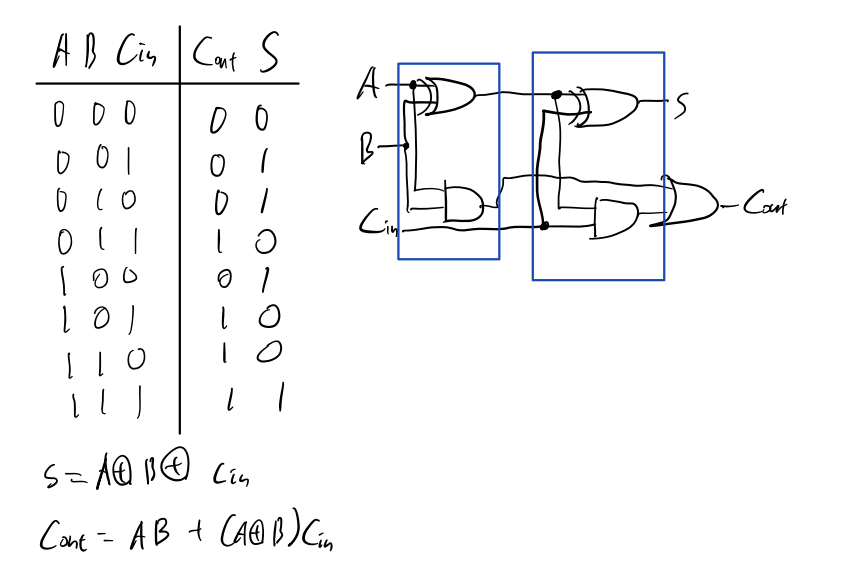 A B Cin Cout S
0 0 0 0 0
0 0 1 0 1
0 1 0 0 1
0 1 1 1 0
1 0 0 0 1
1 0 1 1 0
1 1 0 1 0
1 1 1 1 1
S = A⊕B⊕ Cin
Cout = AB + (A⊕B)Cin
A
B
Cin
S
Cout